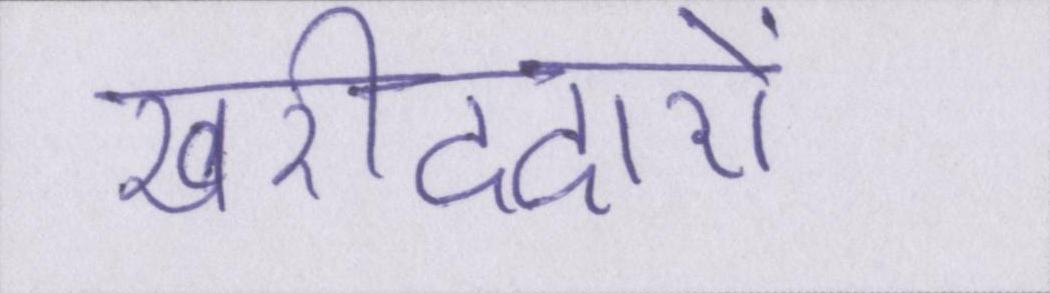 खरीददारों